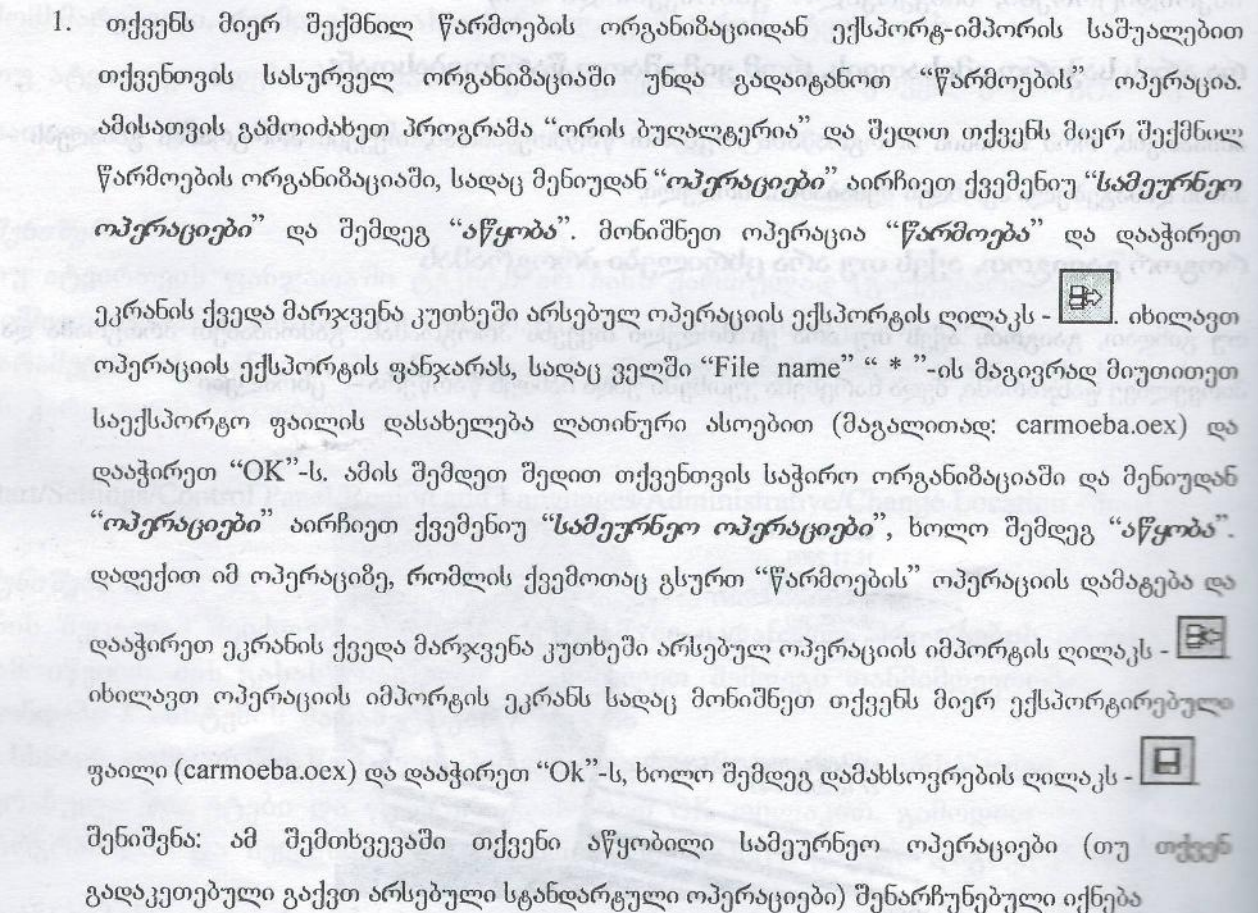 1. თქვენს მიერ შექმნილ წარმოების ორგანიზაციიდან ექსპორტ-იმპორის საშუალებით
თქვენთვის სასურველ ორგანიზაციაში უნდა გადაიტანოთ “წარმოების” ოპერაცია.
ამისათვის გამოიძახეთ პროგრამა “ორის ბუღალტერია” და შედით თქვენს მიერ შექმნილ
წარმოების ორგანიზაციაში, სადაც მენიუდან “ოპერაციები” აირჩიეთ ქვემენიუ “სამეურნეო
ოპერაციები” და შემდეგ “აწყობა”. მონიშნეთ ოპერაცია “წარმოება” და დააჭირეთ
ეკრანის ქვედა მარჯვენა კუთხეში არსებულ ოპერაციის ექსპორტის ღილაკს - . იხილავთ
ოპერაციის ექსპორტის ფანჯარას, სადაც ველში “File name” “ * ”-ის მაგივრად მიუთითეთ
საექსპორტო ფაილის დასახელება ლათინური ასოებით (მაგალითად: carmoeba.oex) და
დააჭირეთ “OK”-ს, ამის შემდეთ შედით თქვენთვის საჭირო ორგანიზაციაში და მენიუდან
“ოპერაციები” აირჩიეთ ქვემენიუ “სამეურნეო ოპერაციები”, ხოლო შემდეგ “აწყობა”.
დადექით იმ ოპერაციზე, რომლის ქვემოთაც გსურთ “წარმოების” ოპერაციის დამატება და
დააჭირეთ ეკრანის ქვედა მარჯვენა კუთხეში არსებულ ოპერაციის იმპორტის ღილაკს -
იხილავთ ოპერაციის იმპორტის ეკრანს სადაც მონიშნეთ თქვენს მიერ ექსპორტირებული
ფაილი (carmoeba.oex) და დააჭირეთ “Ok”-ს, ხოლო შემდეგ დამახსოვრების ღილაკს -
შენიშვნა: ამ შემთხვევაში თქვენი აწყობილი სამეურნეო ოპერაციები (თუ თქვენ
გადაკეთებული გაქვთ არსებული სტანდარტული ოპერაციები) შენარჩუნებული იქნება